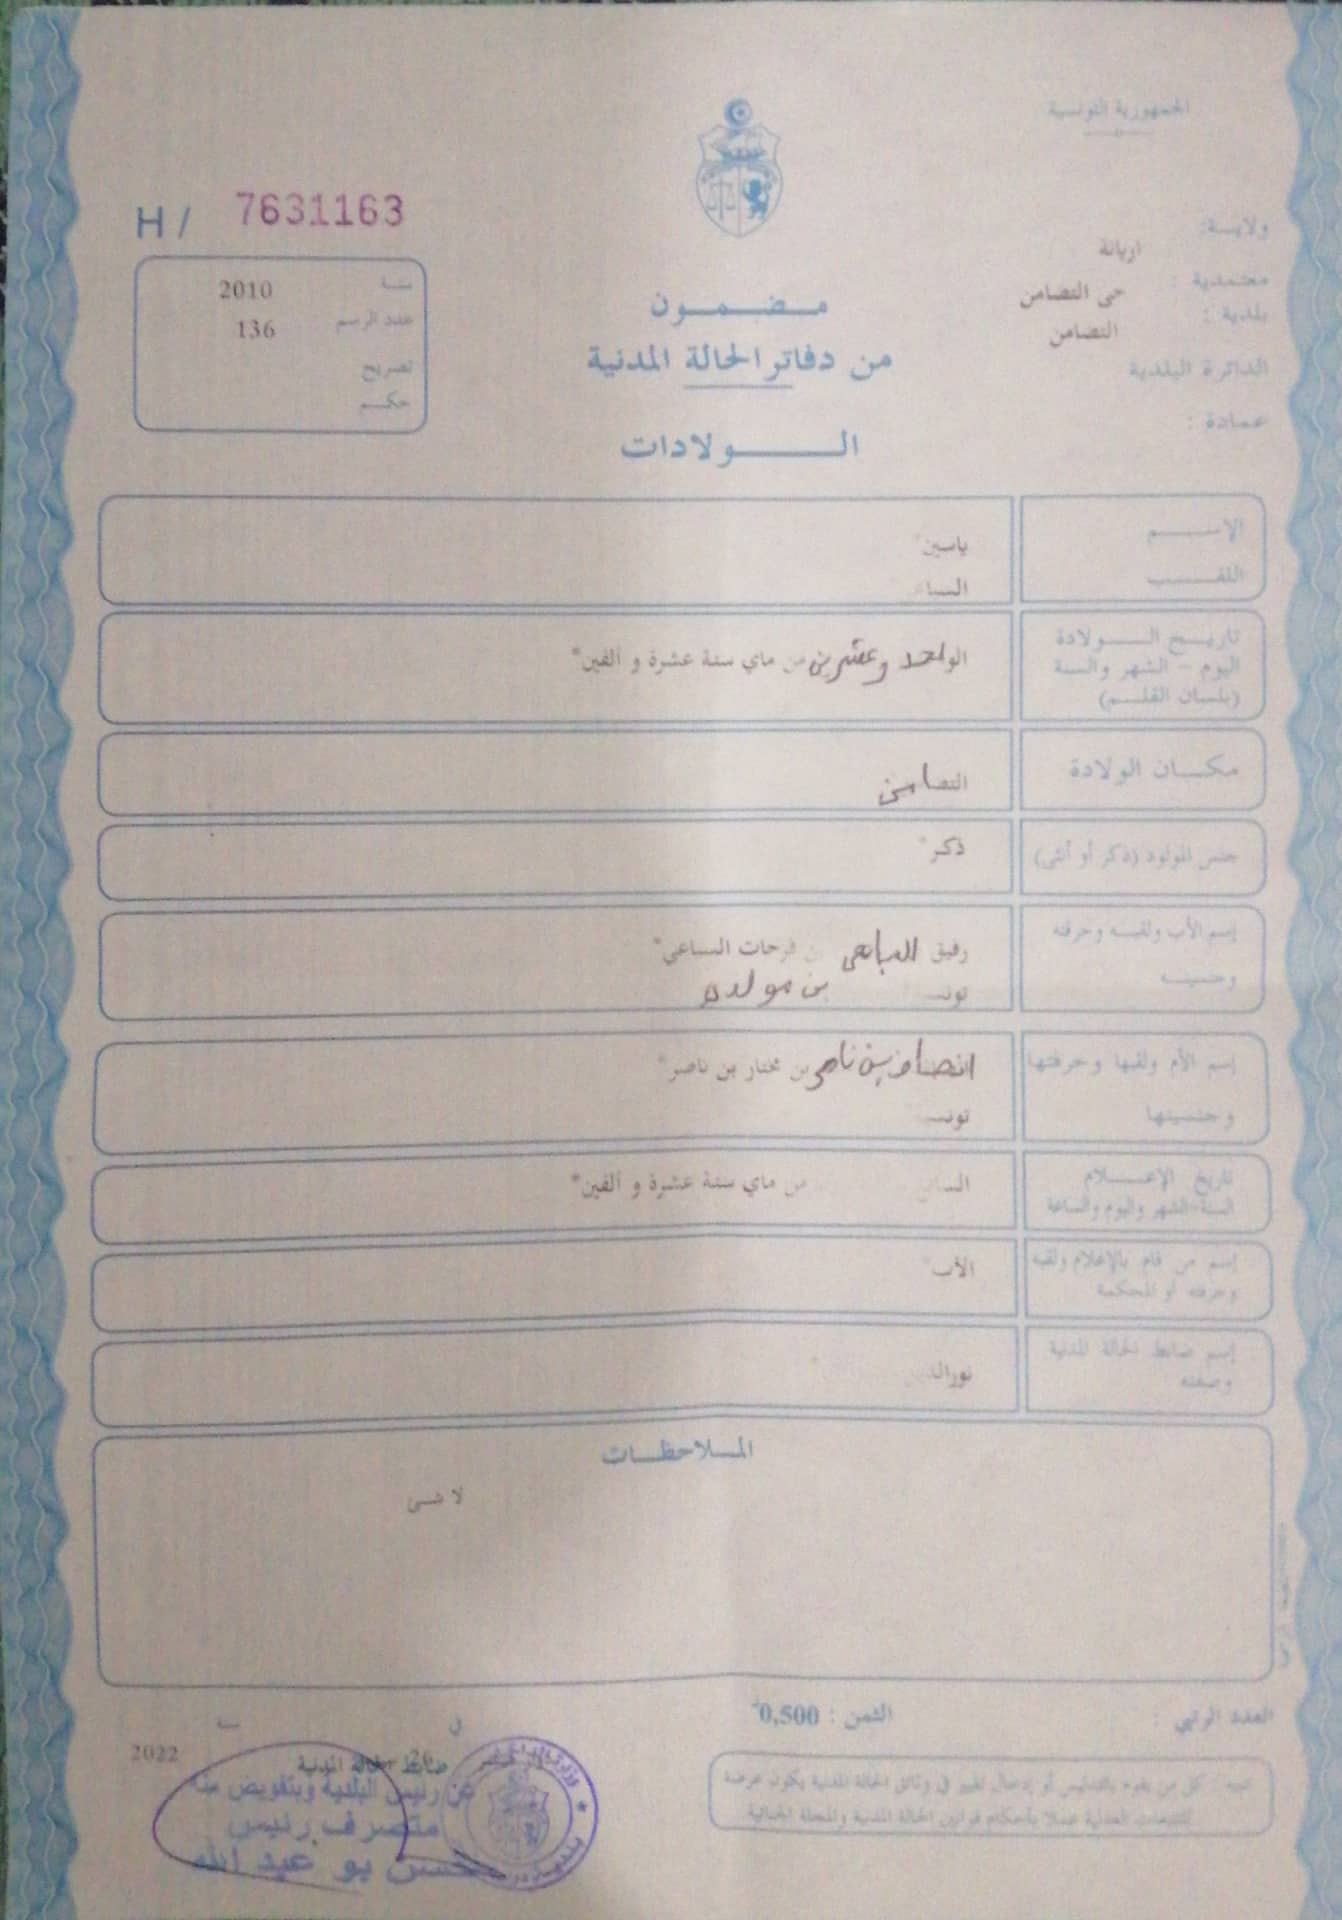 الجمهورية التونسية
H / 7631163
ولاية: اريانة
معتمدية : حى التضامن
بلدية : التضامن
الدائرة البلدية
عمادة :
سنة 2010
عدد الرسم 136
تصريح
حكم
مضمون
من دفاتر الحالة المدنية
الولادات
الإسم ياسين
اللقب
تاريخ الولادة
اليوم - الشهر والسنة
(بلسان القلم)
الواحد وعشرين من ماي سنة عشرة و ألفين*
مكان الولادة التضامن
جنس المولود (ذكر أو أنثى) ذكر*
إسم الأب ولقبه وحرفته
رفيق بن فرحات الساعي*
وجنسيته
إسم الأم ولقبها وحرفتها
بن مختار بن ناصر*
وجنسيتها
تاريخ الإعلام
السنة-الشهر واليوم والساعة
من ماي سنة عشرة و ألفين*
إسم من قام بالإعلام ولقبه
وحرفته أو المحكمة
الأب*
إسم ضابط الحالة المدنية
وصفته
الملاحظات
لا شى
العدد الرتبي :
الثمن : 0,500
في سنة 2022
ضابط الحالة المدنية
عن رئيس البلدية وبتفويض منه
متصرف رئيس
حسن بو عبد الله
تنبيه : كل من يقوم بالتدليس أو إدخال تغيير في وثائق الحالة المدنية يكون عرضة
للتتبعات العدلية عملا بأحكام قوانين الحالة المدنية والمجلة الجنائية